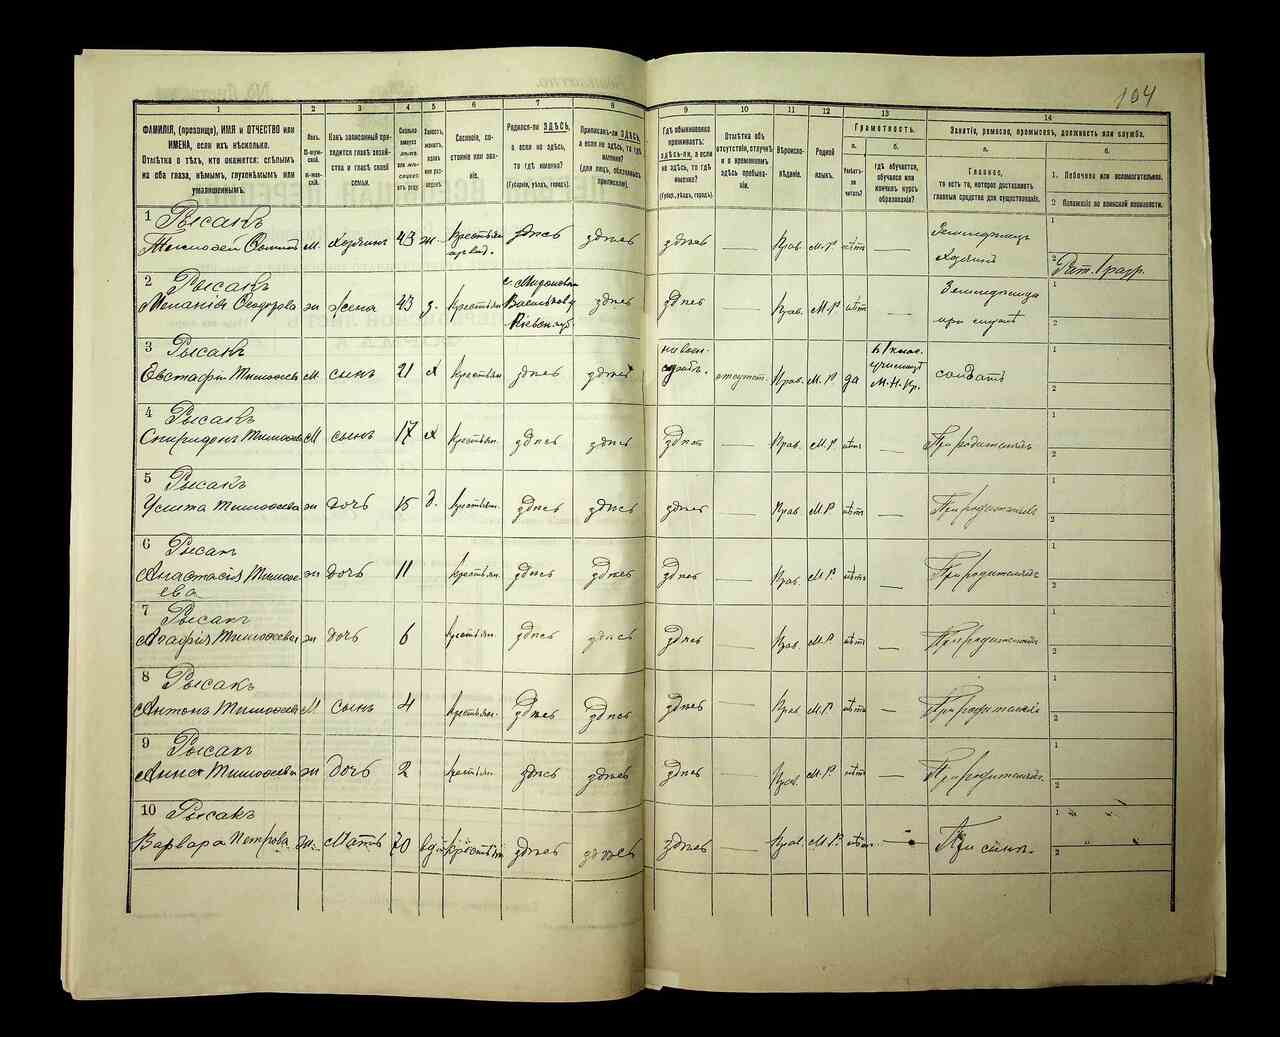 104
1 2 3 4 5 6 7 8 9 10 11 12 13 14
ФАМИЛІЯ, (прозвище), ИМЯ и ОТЧЕСТВО или
ИМЕНА, если ихъ нѣсколько.
Отмѣтка о тѣхъ, кто окажется: слѣпымъ
на оба глаза, нѣмымъ, глухонѣмымъ или
умалишеннымъ.
Какъ записанный при-
ходится главѣ хозяй-
ства и главѣ своей
семьи.
Сословіе, со-
стояніе или зва-
ніе.
Родился-ли ЗДѢСЬ,
а если не здѣсь,
то гдѣ именно?
(Губернія, уѣздъ, городъ).
Приписанъ-ли ЗДѢСЬ,
а если не здѣсь, то гдѣ
именно?
(для лицъ, обязанныхъ
припискою).
Гдѣ обыкновенно
проживаетъ:
здѣсь-ли, а если
не здѣсь, то гдѣ
именно?
(Губерн., уѣздъ, городъ).
Отмѣтка объ
отсутствіи, отлучкѣ
и о временномъ
здѣсь пребыва-
ніи.
Вѣроиспо-
вѣданіе.
Родной
языкъ.
Грамотность.
а.
Умѣетъ-
ли
читать?
б.
гдѣ обучается,
обучался или
кончилъ курсъ
образованія?
Занятіе, ремесло, промыселъ, должность или служба.
а.
Главное,
то есть то, которое доставляетъ
главныя средства для существованія.
б.
1. Побочное или вспомогательное.
2 Положеніе по воинской повинности.
1 Рысакъ
Тимофей м. хозяинъ 43 ж. здѣсь здѣсь здѣсь — Прав. М.Р нѣтъ — Земледѣлецъ
хозяинъ
Рат. 1 разр.
2 Рысакъ
Меланія Ѳеодорова ж жена 43 з. Крестьян здѣсь здѣсь — Прав. М.Р нѣтъ —
3 Рысакъ
Евстафій Тимофеев м. сынъ 21 х Крестьян здѣсь здѣсь отсутст. Прав. М.Р да солдатъ
4 Рысакъ
Спиридонъ Тимофеев М сынъ 17 х Крестьян. здѣсь здѣсь здѣсь — Прав. М.Р нѣтъ — При родителяхъ
5 Рысакъ
Тимофеева ж дочь 15 д. Крестьян. здѣсь здѣсь здѣсь — Прав. М.Р нѣтъ — При родителяхъ
6 Рысакъ
Анастасія Тимофе- ж дочь 11 Крестьян. здѣсь здѣсь здѣсь — Прав. М.Р нѣтъ При родителяхъ
ева
7 Рысакъ
Агафія Тимофеева ж дочь 6 Крестьян. здѣсь здѣсь здѣсь — Прав. М.Р нѣтъ — При родителяхъ
8 Рысакъ
Антонъ Тимофеев М сынъ 4 Крестьян. здѣсь здѣсь здѣсь — Прав. М.Р нѣтъ — При родителяхъ
9 Рысакъ
Анна Тимофеева ж дочь 2 Крестьян здѣсь здѣсь здѣсь — Прав. М.Р нѣтъ — При родителяхъ
10 Рысакъ
Варвара Петрова ж. Мать 70 Крестьян здѣсь здѣсь здѣсь — Прав. М.Р. нѣтъ — При сынѣ.